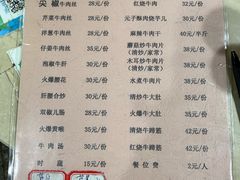 尖椒牛肉丝 28元/份
芹菜牛肉丝 28元/份
洋葱牛肉丝 28元/份
仔姜牛肉丝 35元/份
泡椒牛肝 30元/份
火爆腰花 30元/份
肝腰合炒 30元/份
双椒儿肠 28元/份
火爆黄喉 35元/份
牛肉汤 30元/份
时蔬 15元/份
红烧牛肉 32元/份
元子酥肉烧芋儿 30元/份
麻辣牛肉干 40元/半斤
蘑菇炒牛肉片 30元/份
(清炒/家常)
木耳炒牛肉片 30元/份
(清炒/家常)
水煮牛肉片 30元/份
清炖牛大肚 35元/份
火爆牛大肚 35元/份
清炖牛蹄筋 45元/份
红烧牛蹄筋 45元/份
餐位费 2元/人